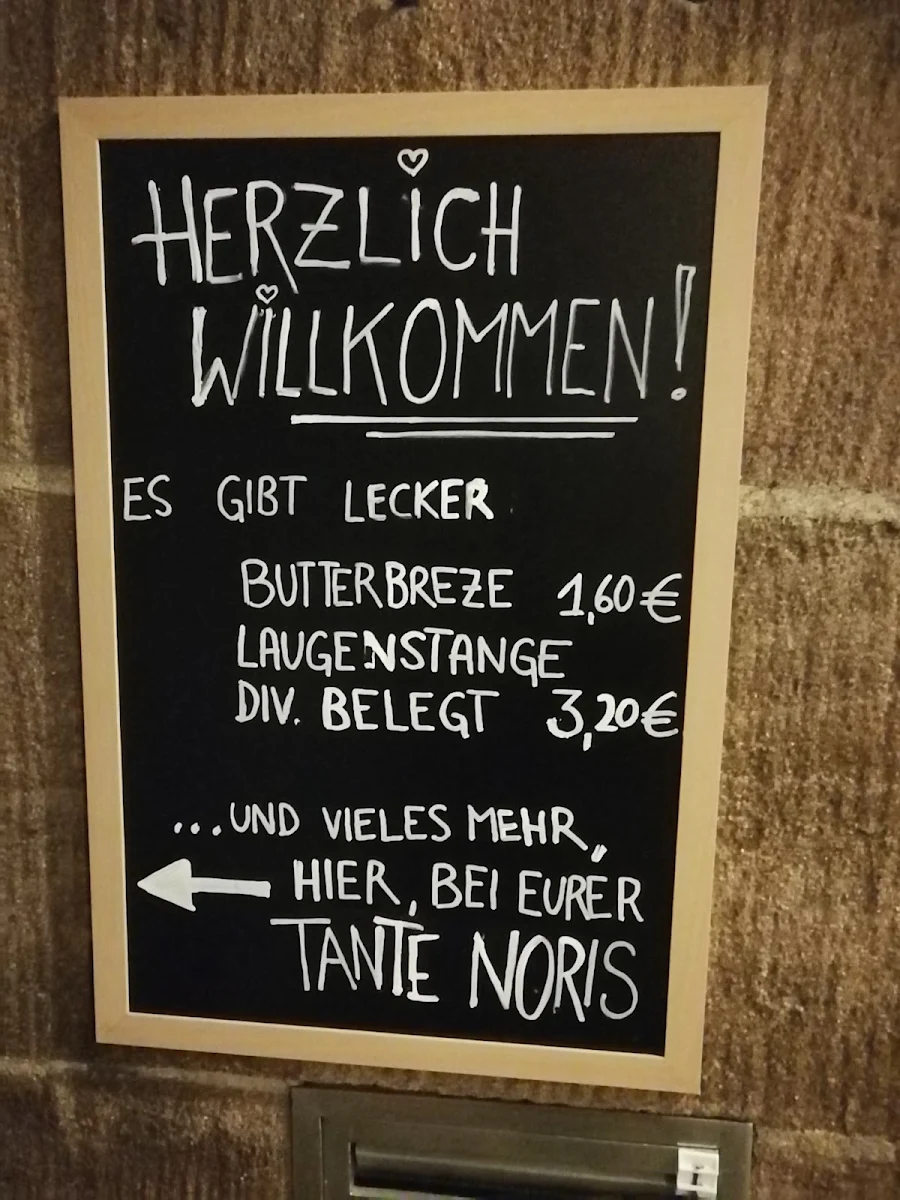 HERZLICH
WILLKOMMEN!
ES GIBT LECKER
BUTTERBREZE 1,60€
LAUGENSTANGE
DIV. BELEGT 3,20€
...UND VIELES MEHR,
HIER, BEI EURER
TANTE NORIS